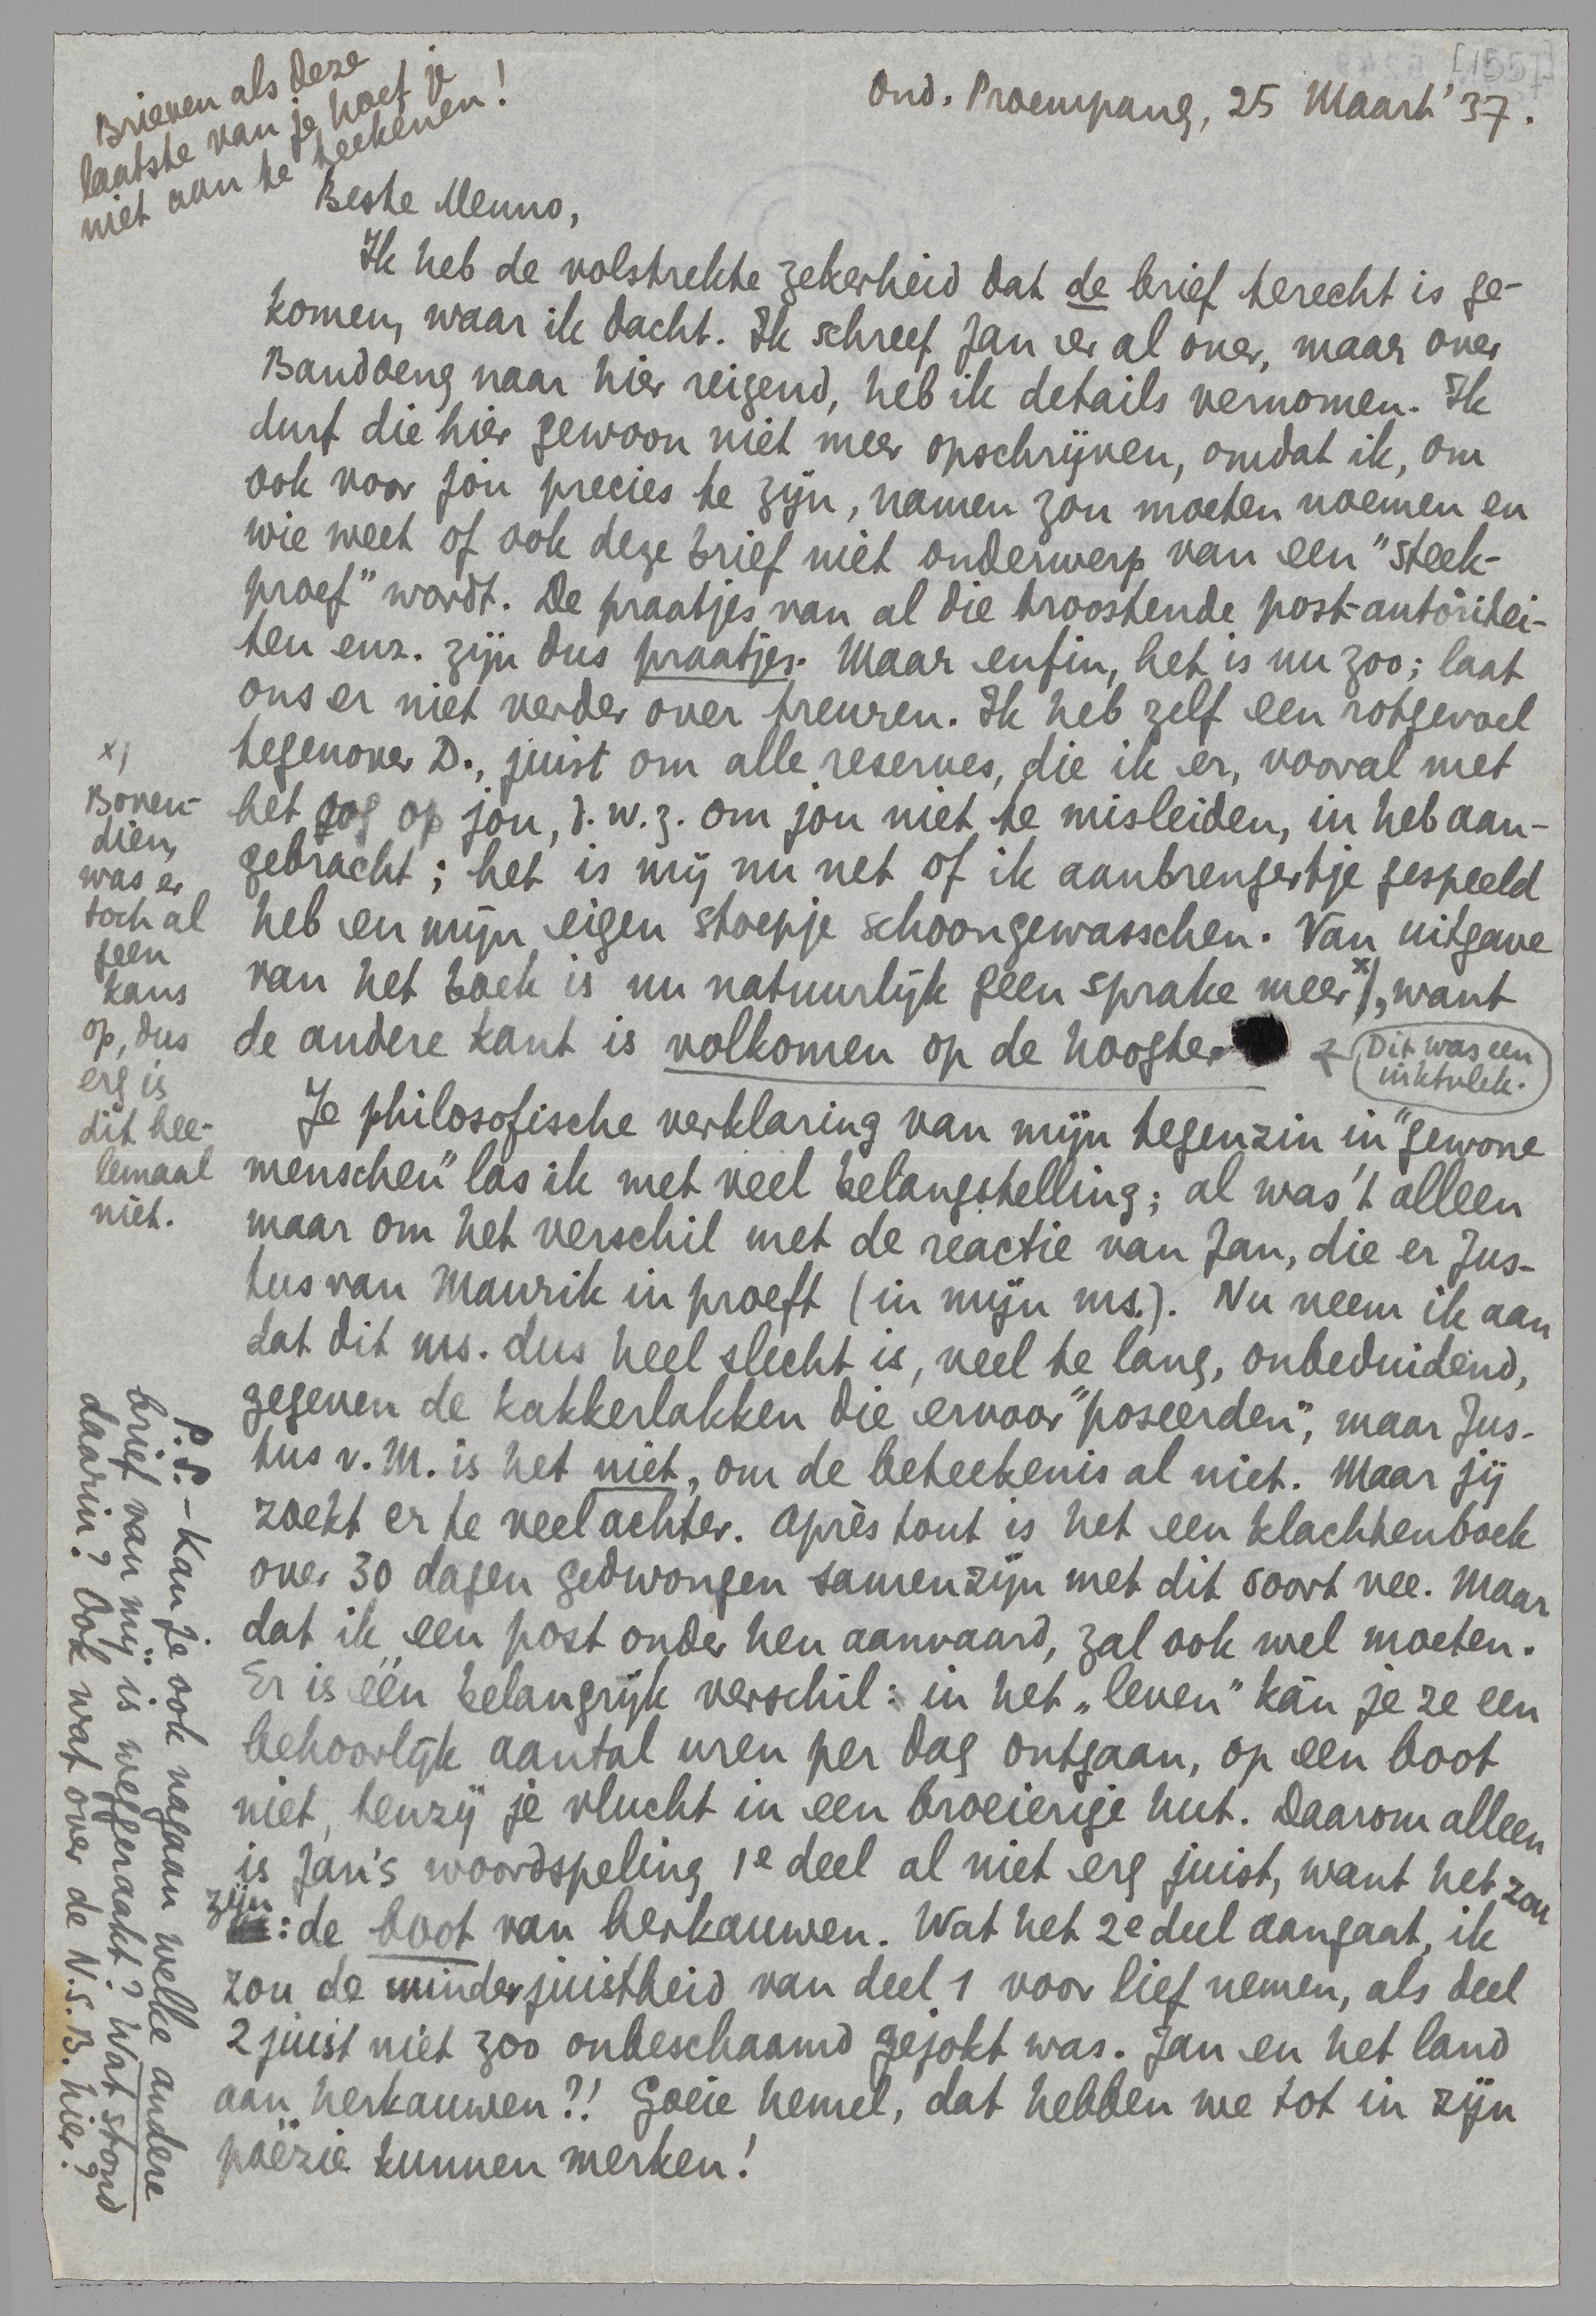 [1557]
Brieven als deze
laatste van je hoef je
niet aan te teekenen!
Ond. Proempang, 25 Maart '37.
Beste Menno,
Ik heb de volstrekte zekerheid dat de brief terecht is ge-
komen, waar ik dacht. Ik schreef Jan er al over, maar over
Bandoeng naar hier reizend, heb ik details vernomen. Ik
durf die hier gewoon niet meer opschrijven, omdat ik, om
ook voor jou precies te zijn, namen zou moeten noemen en
wie weet of ook deze brief niet onderwerp van een "steek-
proef" wordt. De praatjes van al die troostende post-autoritei-
ten enz. zijn dus praatjes. Maar enfin, het is nu zoo; laat
ons er niet verder over treuren. Ik heb zelf een rotgevoel
tegenover D., juist om alle reserves, die ik er, vooral met
het oog op jou, d.w.z. om jou niet te misleiden, in heb aan-
gebracht; het is mij nu net of ik aanbrengertje gespeeld
heb en mijn eigen stoepje schoongewasschen. Van uitgave
van het boek is nu natuurlijk geen sprake meer x), want
de andere kant is volkomen op de hoogte.
Dit was een
inktvlek.
x)
Boven-
dien,
was er
toch al
geen
kans
op, dus
erg is
dit hee-
lemaal
niet.
Je philosofische verklaring van mijn tegenzin in "gewone
menschen" las ik met veel belangstelling; al was 't alleen
maar om het verschil met de reactie van Jan, die er Jus-
tus van Maurik in proeft (in mijn ms.). Nu neem ik aan
dat dit ms. dus heel slecht is, veel te lang, onbeduidend,
gegeven de kakkerlakken die ervoor "poseerden", maar Jus-
tus v. M. is het niet, om de beteekenis al niet. Maar jij
zoekt er te veel achter. Après tout is het een klachtenboek
over 30 dagen gedwongen samenzijn met dit soort vee. Maar
dat ik een post onder hen aanvaard, zal ook wel moeten.
Er is één belangrijk verschil: in het "leven" kàn je ze een
behoorlijk aantal uren per dag ontgaan, op een boot
niet, tenzij je vlucht in een broeierige hut. Daarom alleen
is Jan's woordspeling 1e deel al niet erg juist, want het zou
zijn: de boot van herkauwen. Wat het 2e deel aangaat, ik
zou de minderjuistheid van deel 1 voor lief nemen, als deel
2 juist niet zoo onbeschaamd gejokt was. Jan en het land
aan herkauwen?! Goeie hemel, dat hebben we tot in zijn
poëzie kunnen merken!
P.S. - Kan je ook nagaan welke andere
brief van mij is weggeraakt? Wat stond
daarin? Ook wat over de N.S.B. hier?